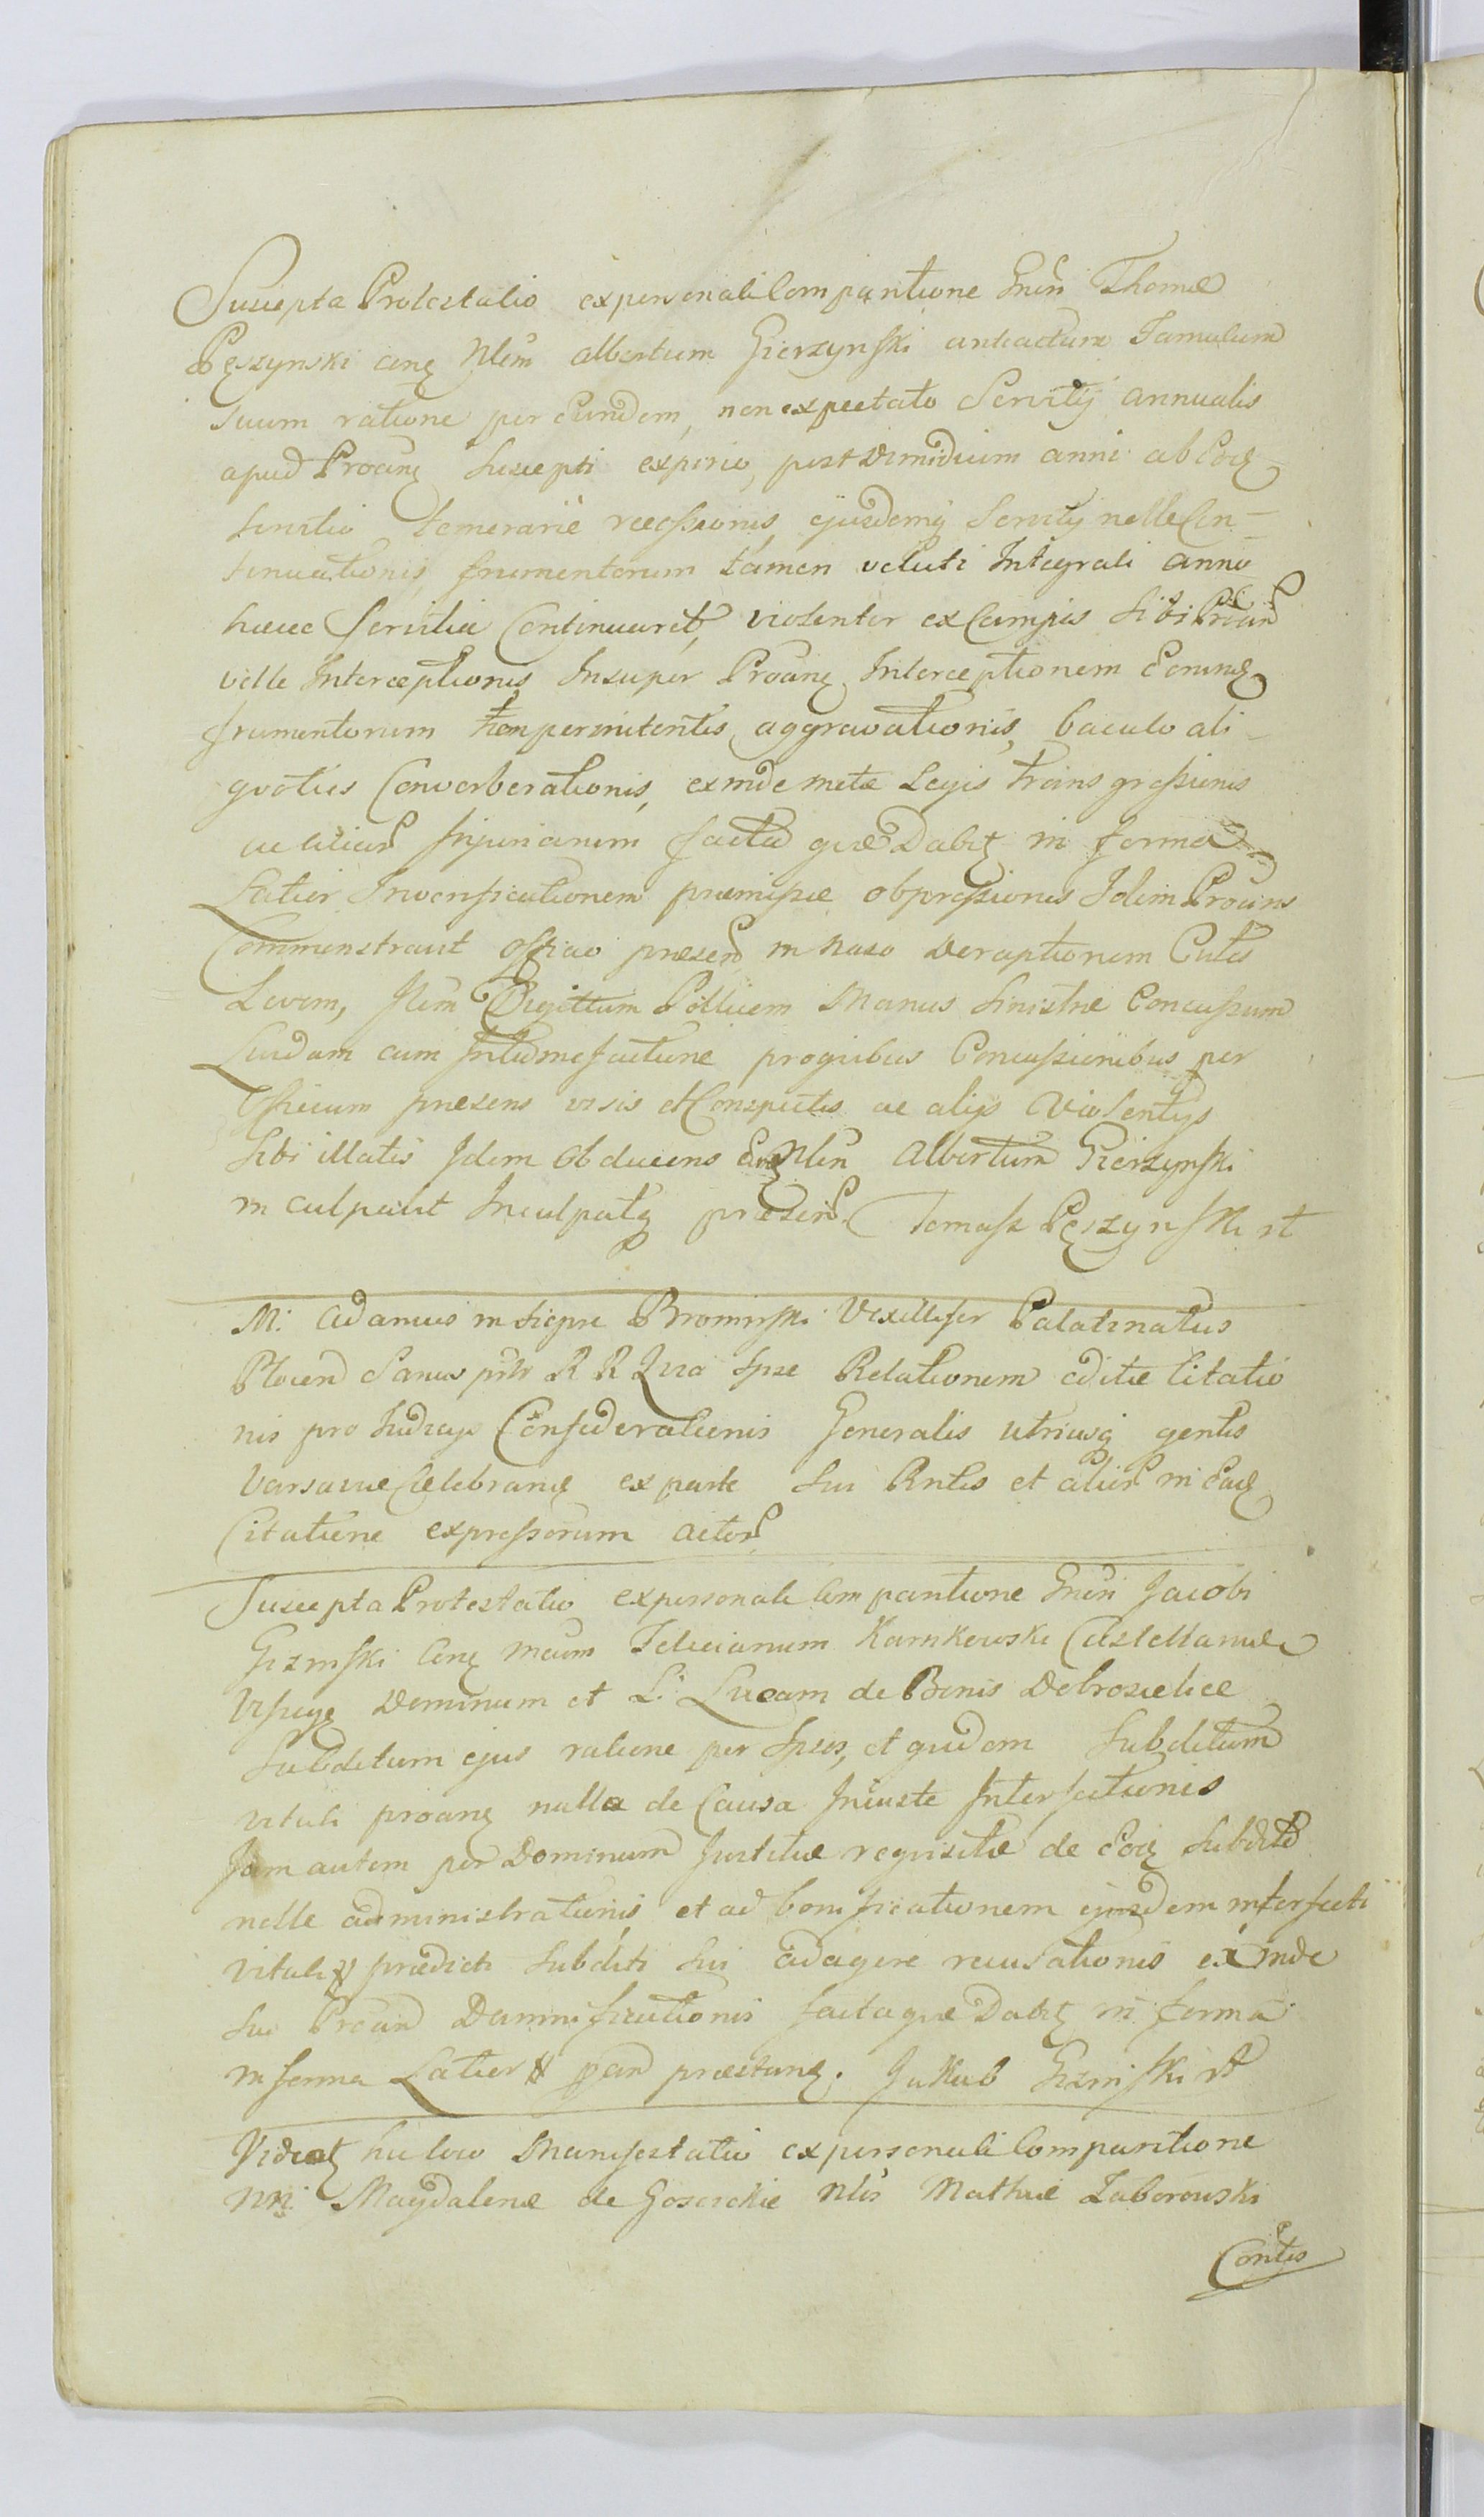 Suscepta Protestatio expersonali Comparitione Gnsi Thomæ
Pęszynski cirę Nlem Albertum Gierzynski anteactum Famulum
suum ratione per Eundem, non expectato Servitÿ annualis
apud Procinę Suscepti expirio, post Dimidium anni ab Eodę
servitio temerariè recessionis, ejusdemq Servitÿ nolle Con-
tinuationis, frumentorum támen veluti Integrali anno
hæcce Servitia Continuaret, violenter ex Campis Sibi
velle Interceptionis Insuper Procinę Interceptionem Eorund
frumentorum non permitentis, aggravationis, baculo ali-
quoties Converberationis, exinde metæ Legis transgressionis
ac aliar Injuriarum facta quæ Dabit in forma
Latior Inversificationem præmissæ obpressionis Idem Procins
Commonstravit Officio præsen in naso Deraptionem Cutis
Levem, Item Digittum Pollicem Manus Sinistræ Concussum
Lividum cum Intumefactione proquibus Concussionibus per
Officium præsens visis et Conspectis ac alijs Violentijs
Sibi illatis Idem Obducens Nlem Albertum Gierzynski
in culpavit Inculpatq præsen. Tomasz Pęszynski rt
M: Adamus in Siepre Brominski Vexillifer Palatinatus
Plocen Sanus R R Qria Ipse Relationem editæ Citatio
nis pro Judicys Confæderationis Generalis utriusq gentis
Varsaviæ Celebranę ex parte Sui Rntis et alior in Eadę
Citatione expressorum actor
Suscepta Protestatio expersonali Comparitione Gnsi Jacobi
Gizinski Cirę Mcum Felicianum Karnkowski Castellanum
Dominum et L: Lucam de Bonis Dobrosielice
Subditum ejus ratione per Ipsos, et quidem Subditum
vituli procinę nulla de Causa Iniuste Interfectionis
Jam autem per Dominum Justitiæ requisitæ de Eodę Subdito
nolle administrationis et ad bonificationem ejusdem interfecti
vituli prædicti Subditi Sui adagere recusationis exinde
Sui Procin Damnificationis facta quæ Dabit in forma
in forma Latior præstanę. Jakub Gizinski rt
Videat hic loco Manifestatio expersonali Comparitione
Magdalenæ de Gosirckie Nlis Mathiæ Zaborowski
Contis